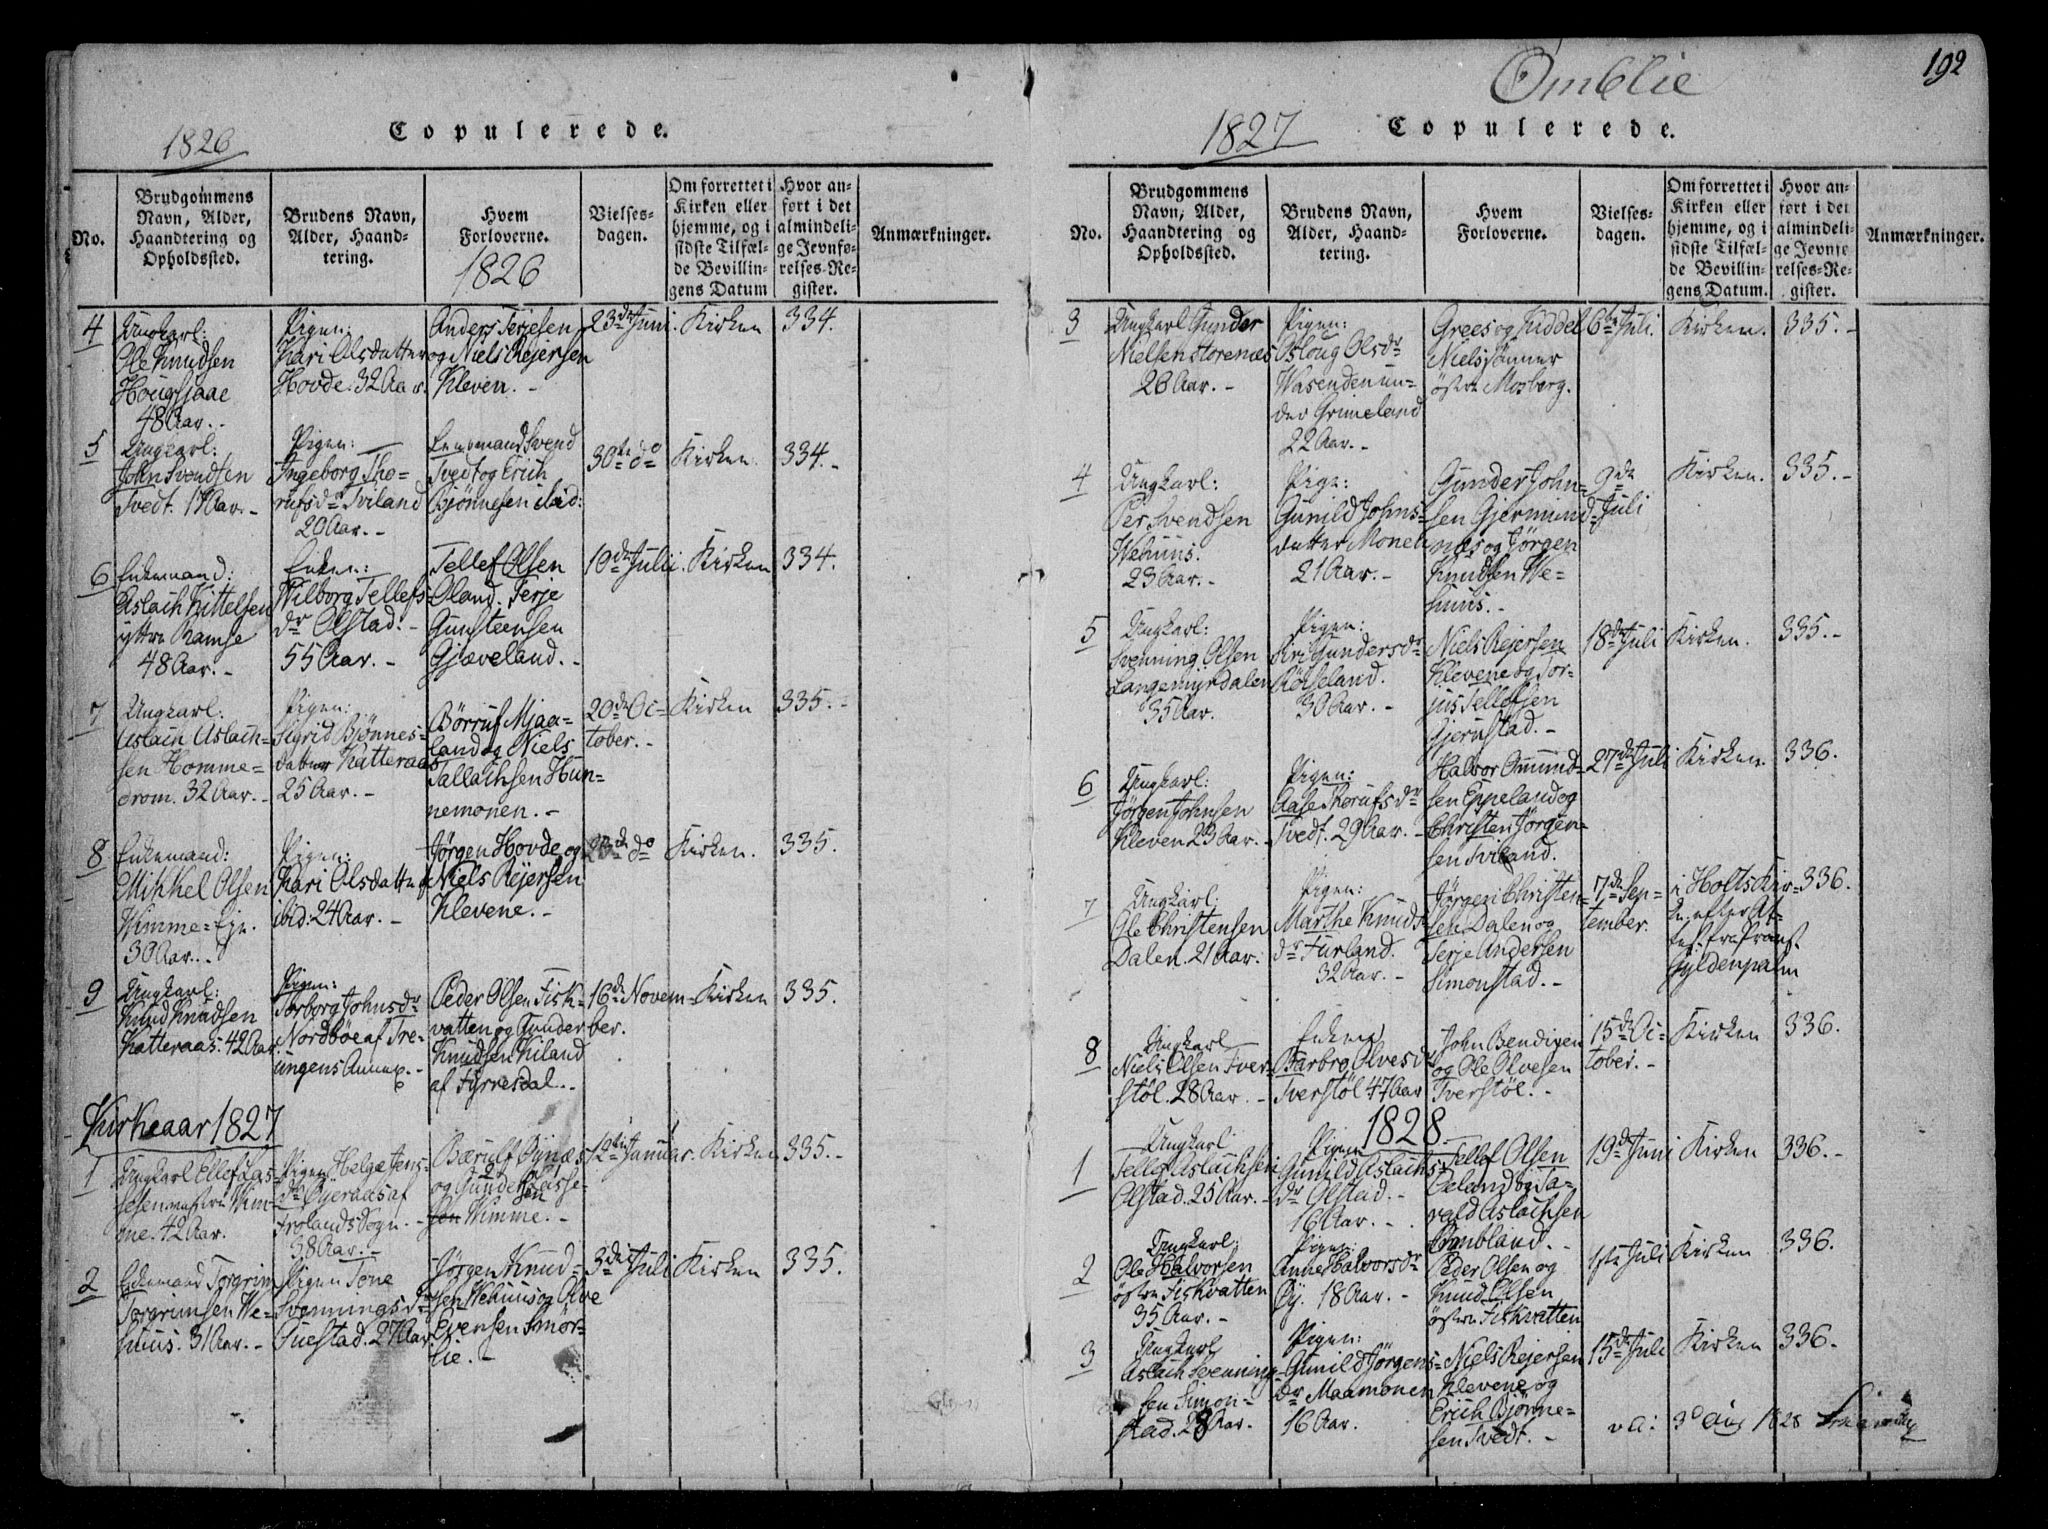 1826
Copulerede.
No.
Brudgommens
Navn, Alder,
Haandtering og
Opholdssted.
Brudens Navn,
Alder, Haand-
tering.
Hvem
Forloverne.
1826
Vielses-
dagen.
Om forrettet i
Kirken eller
hjemme, og i
sidste Tilfæl-
de Bevillin-
gens Datum
Hvor an-
ført i det
almindeli-
ge Jevnfø-
relses-Re-
gister.
Anmærkninger.
4
Ungkarl:
Ole Knudsen
Hougsjaae
48 Aar. -
Pigen:
Kari Olsdatter
Hovde. 32 Aar.
Anders Terjesen
og Niels Rejersen
Kleven. -
23de Juni.
Kirken
334.
5
Ungkarl:
John Svendsen
Tvedt. 17 Aar. -
Pigen:
Ingeborg Tho-
rufsdr Tviland
20 Aar. -
Lensmand Svend
Tvedt og Erich
Bjønnesen ibid:
30te do
Kirken.
334. -
6
Enkemand:
Aslach Kittelsen
yttre Ramse
48 Aar. -
Enken:
Wilborg Tellefs-
dr Olstad. -
55 Aar. -
Tellef Olsen
Oland. Terje
Gunsteensen
Gjæveland. -
10de Julii.
Kirken
334.
7
Ungkarl:
Aslach Aslach-
sen Homme-
drom. 32 Aar. -
Pigen:
Sigrid Bjønnes-
datter Katteraas
25 Aar. -
Børruf Mjaa-
land og Niels
Tallachsen Hun-
nemonen. -
20de Oc-
tober. -
Kirken
335. -
8
Enkemand:
Mikkel Olsen
Wimme-Eje.
30 Aar. -
Pigen:
Kari Olsdatter
ibid: 24 Aar. -
Jørgen Hovde og
Niels Rejersen
Klevene. -
do
Kirken.
335.
9
Ungkarl:
Knud Knudsen
Katteraas. 42 Aar.
Pigen:
Torborg Johnsdr
Nordbøe af Tre-
ungens Annex. -
Peder Olsen Fisk-
vatten og Gunder
Knudsen Kiland
af Fyrresdal. -
16de Novem-
ber.
Kirken
335.
Kirkeaar 1827
1
Ungkarl Ellef Las-
sesen nestre Wim-
me. 42 Aar.
Pigen Helge Jens-
dr Øyeraas af
Frolands Sogn. -
38 Aar. -
Bærulf Øynæs
og Gunder Lasse-
sen Wimme. -
12te Januar.
Kirken
335. -
2
Enkemand Torgrim
Torgrimsen We-
huus. 31 Aar. -
Pigen Tone
Svenningsdr
Tuestad. 27 Aar.
Jørgen Knud-
sen Wehuus og Olve
Evensen Smør-
lie. -
3die Juli
Kirken
335.
Ømblie
192
1827
Copulerede.
No.
Brudgommens
Navn, Alder,
Haandtering og
Opholdssted.
Brudens Navn,
Alder, Haand-
tering.
Hvem
Forloverne.
Vielses-
dagen.
Om forrettet i
Kirken eller
hjemme, og i
sidste Tilfæl-
de Bevillin-
gens Datum.
Hvor an-
ført i det
almindeli-
ge Jevnfø-
relses-Re-
gister.
Anmærkninger.
3
Ungkarl Gunder
Nielsen Storenæs
26 Aar. -
Pigen:
Osloug Olsdr
Wasenden un-
der Grimeland
22 Aar. -
Grees og Fiddel
Nielssønner
østre Mosberg.
6te Juli.
Kirken.
335. -
4
Ungkarl:
Per Svendsen
Wehuus.
23 Aar. -
Pige:
Gunild Johns-
datter Monen
21 Aar. -
Gunder John-
sen Gjermund-
næs og Jørgen
Knudsen We-
huus. -
9de
Juli
Kirken.
335. -
5
Ungkarl:
Svenning Olsen
Langemyrdalen
35 Aar.
Pigen:
Siri Gundersdr
Røiseland.
30 Aar. -
Niels Rejersen
Klevene og Tor-
jus Tellefsen
Gjerustad. -
18de Juli
Kirken.
335. -
6
Ungkarl:
Jørgen Johnsen
Kleven 23 Aar. -
Pigen:
Aase Thorufsdr
Tvedt. 29 Aar. -
Halvor Omund-
sen Eppeland og
Christen Jørgen-
sen Tviland.
27de Juli
Kirken
336.
7
Ungkarl:
Ole Christensen
Dalen. 21 Aar.
Pigen:
Marthe Knuds-
dr Furland.
32 Aar. -
Jørgen Christen-
sen Dalen og
Terje Andersen
Simonstad. -
7de Sep-
tember.
i Holts Kir-
ke efter At-
test fra Provst
Gyldenpalm
336.
8
Ungkarl
Niels Olsen Tver-
støl. 28 Aar. -
Enken
Barbro Olvesdr
Tverstøl 47 Aar
John Bendixen
og Ole Olvesen
Tverstøl. -
15de Oc-
tober. -
Kirken
336.
1828
1
Ungkarl
Tellef Aslachsen
Olstad. 25 Aar. -
Pigen
Gunild Aslachs-
dr Olstad. -
16 Aar. -
Tellef Olsen
Oeland og Ta-
rald Aslachsen
Ømbland. -
19de Juni
Kirken
336. -
2
Ungkarl:
Ole Halvorsen
østre Fiskvatten
35 Aar. -
Pigen:
Anne Halvorsdr
Øy. 18 Aar. -
Peder Olsen og
Knud Olsen
østre Fiskvatten
1ste Juli
Kirken
336.
3
Ungkarl
Aslach Svenning-
sen Simon-
stad. 28 Aar.
Pigen:
Gunild Jørgens-
dr Maamonen
16 Aar.
Niels Rejersen
Klevene og
Erich Bjønne-
sen Tvedt. -
15de Juli
Kirken
336. -
3 Aug 1828